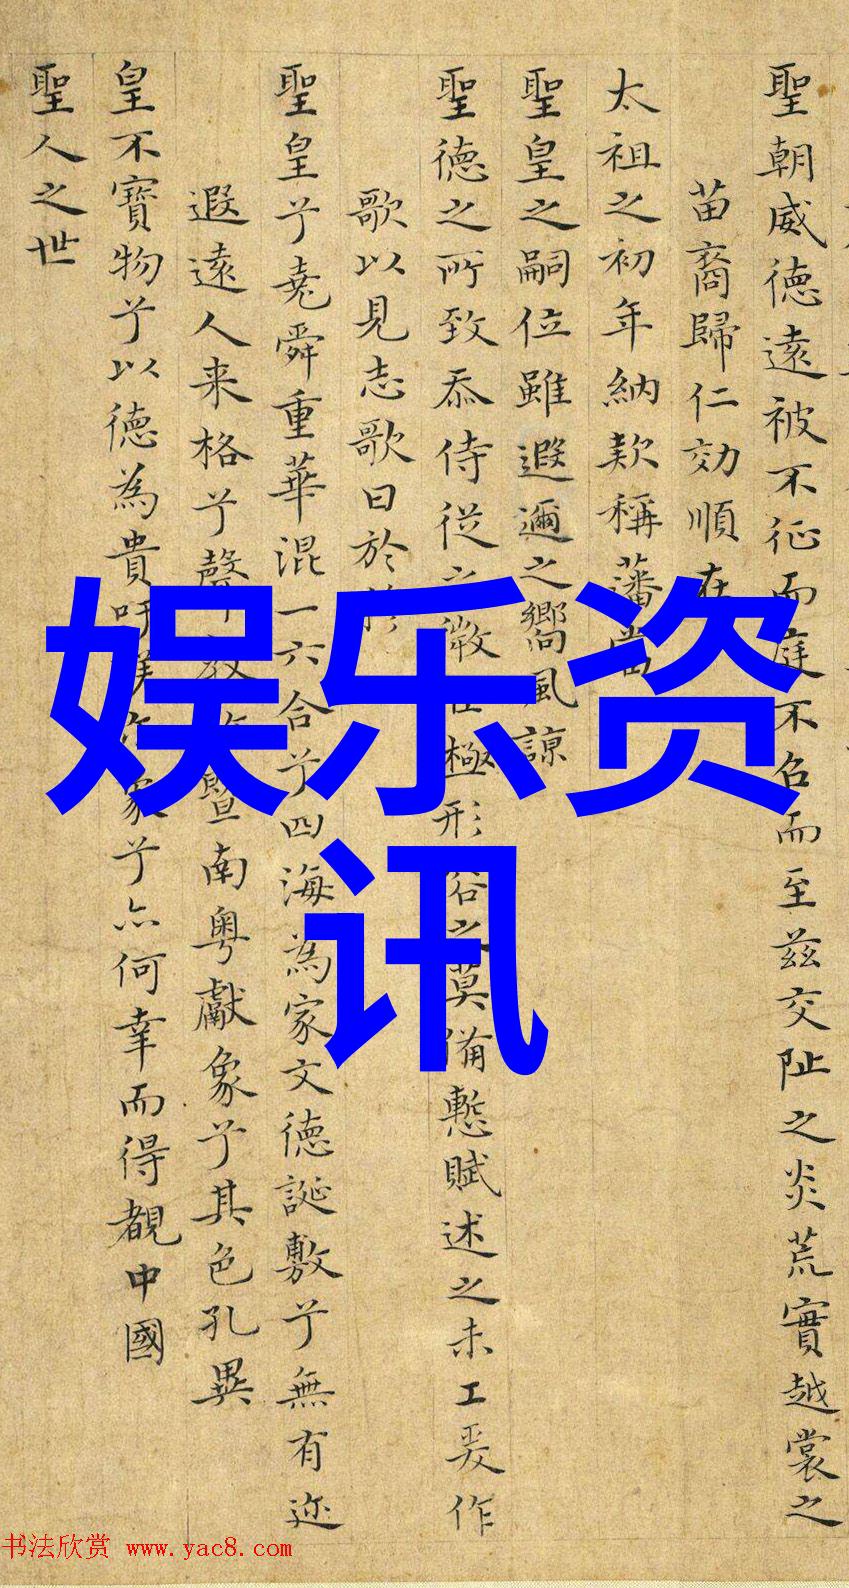 聖朝威德遠被不征而庭不召而至茲交阯之炎荒實越裳之
苗裔歸仁効順在
太祖之初年納款稱藩當
聖皇之嗣位雖遐邇之嚮風諒
聖德之所致忝侍從之極形容之莫備慙賦述之未工爰作
歌以見志歌曰於
聖皇兮堯舜重華混一六合兮四海為家文德誕敷兮無有迩
遐遠人来格兮聲教暨南粵獻象兮其色孔異
皇不寶物兮以德為貴吁象兮亦何幸而得覩中國
聖人之世
娱乐资
讯
书法欣赏 www.yac8.com